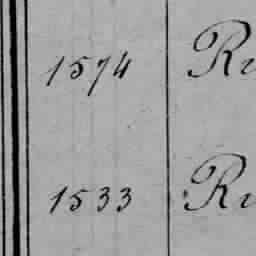 1574 Ru
1533 Ru